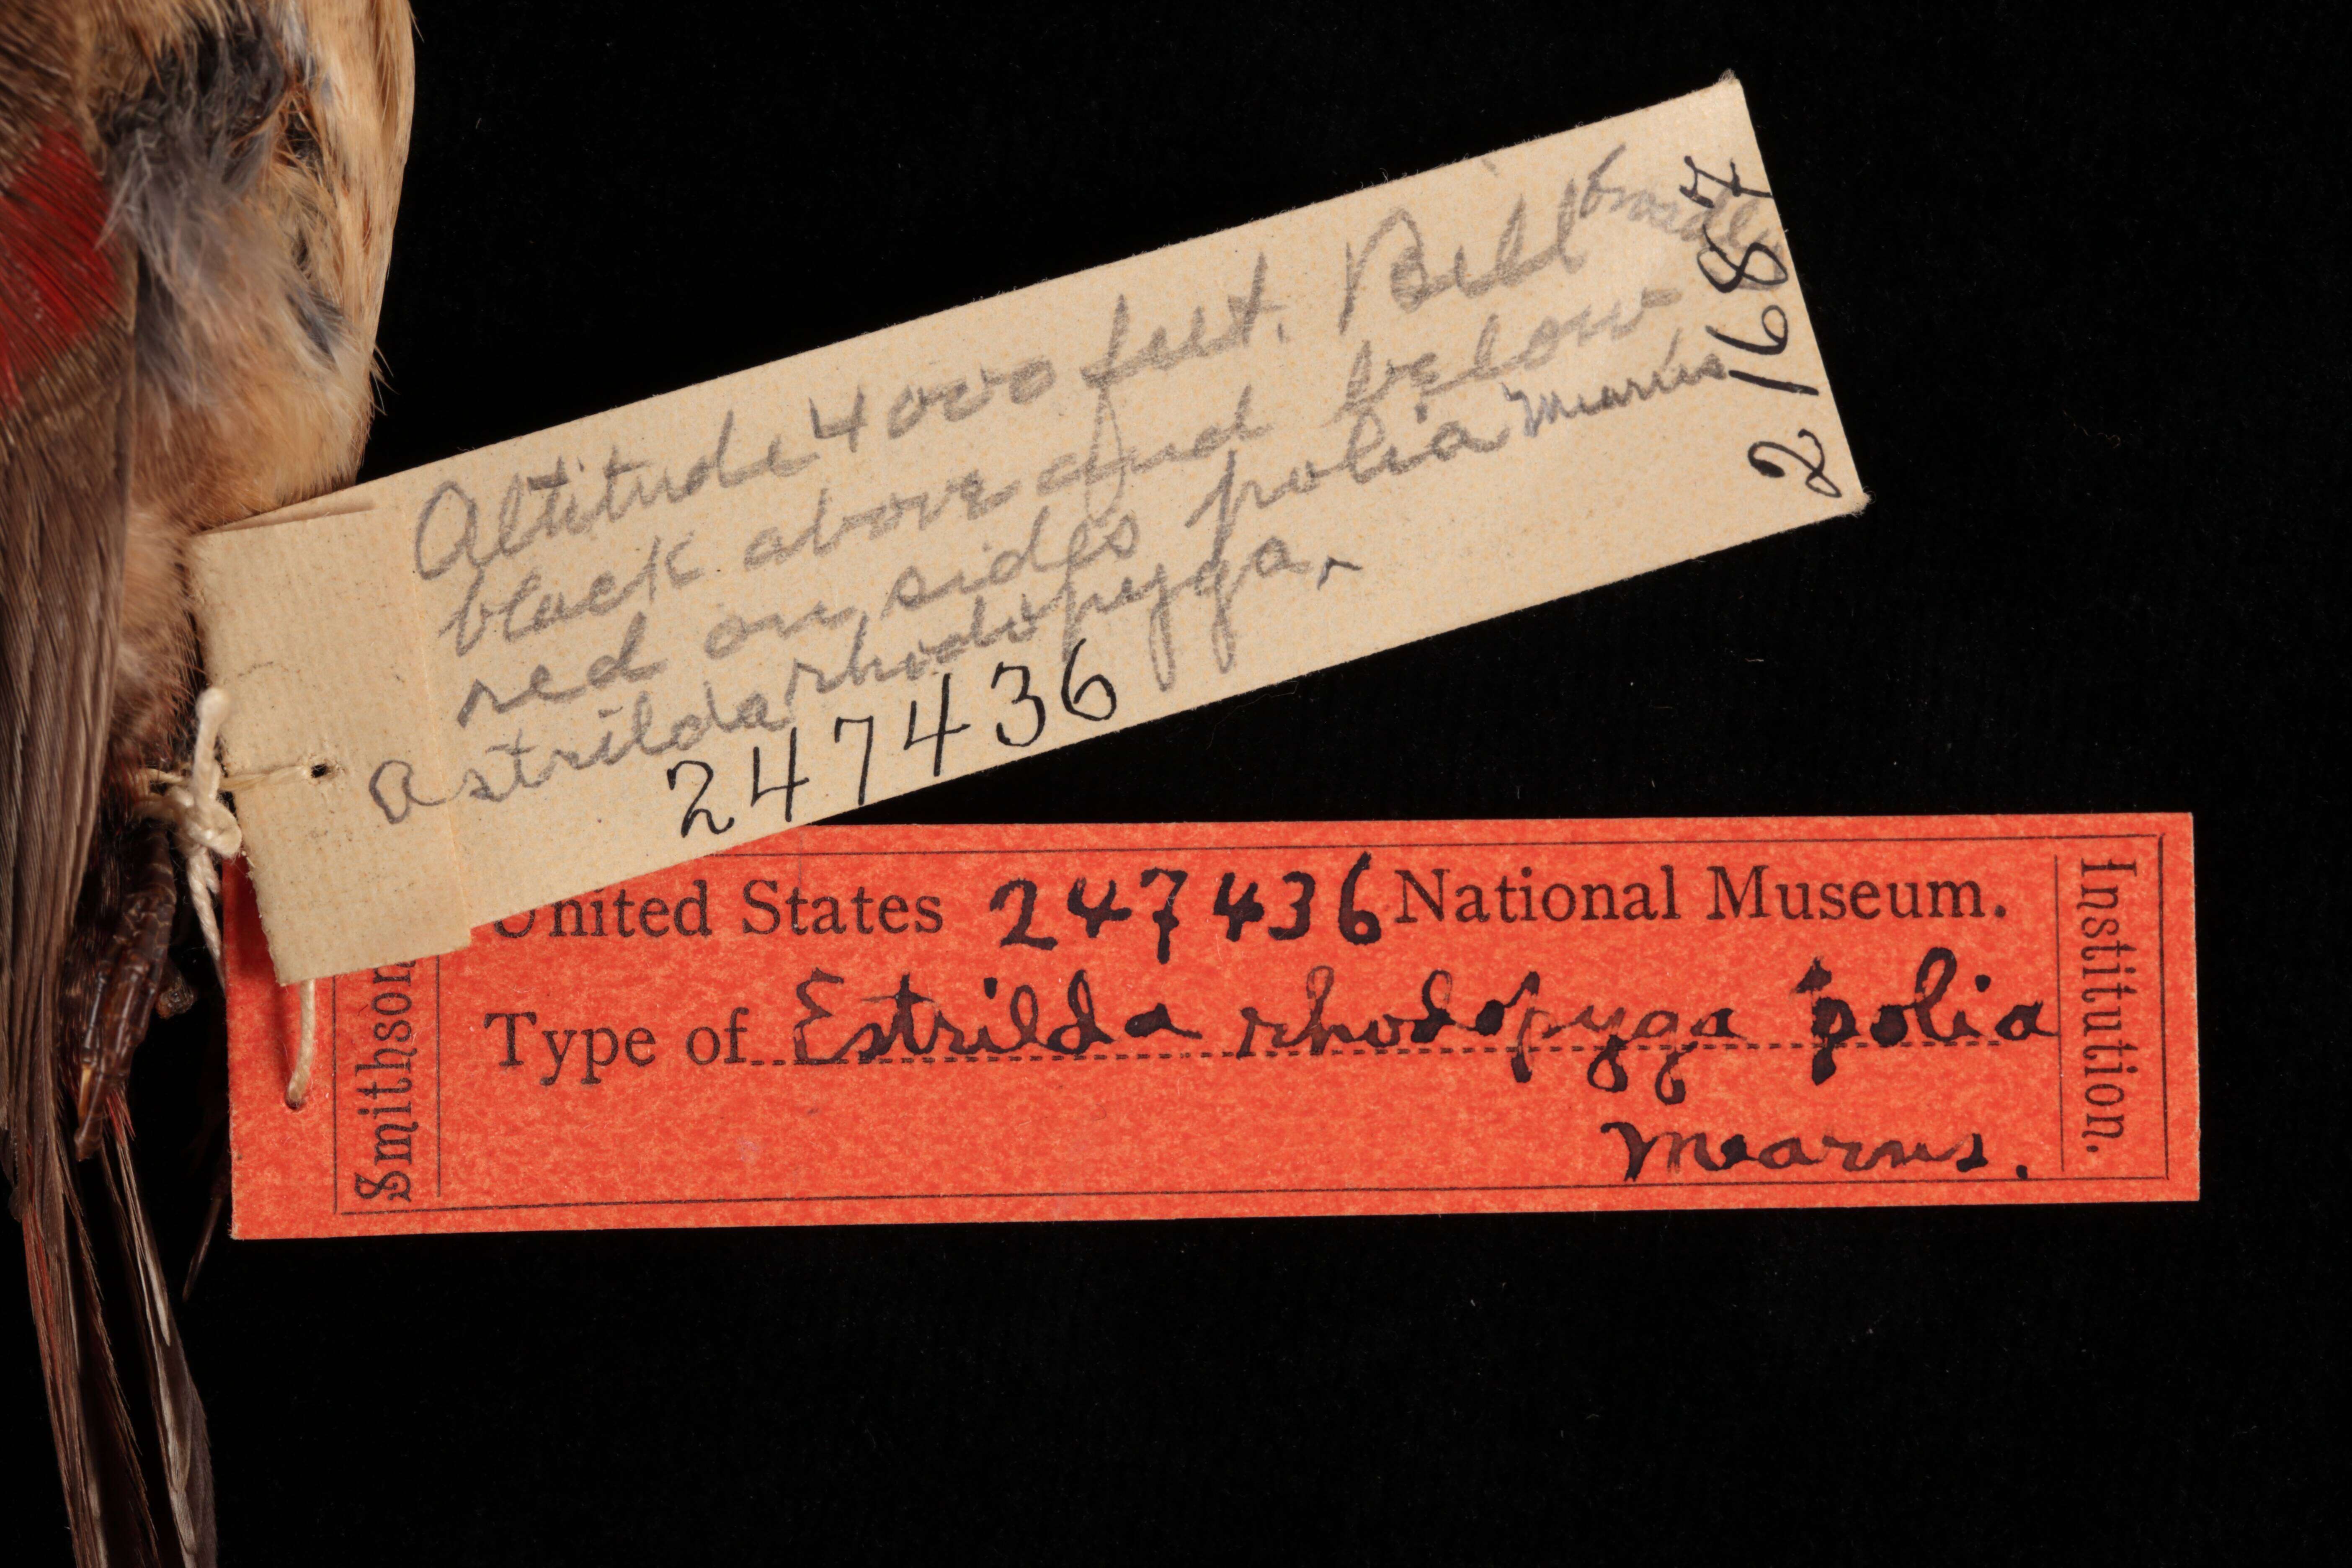 Altitude 4000 feet. Bill broadly
black above and below
red on sides polia Mearns
Astrilda rhodopyga.
247436
21687
United States 247436 National Museum.
Type of Estrilda rhodopyga polia
Mearns.
Smithson
Institution.